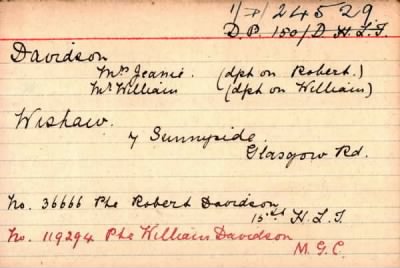 1/D/24529
D.P. 150/D H.L.I.
Davidson
Mrs Jeanie. (dpt on Robert.)
Mr William (dpt on William)
Wishaw.
7 Sunnyside.
Glasgow Rd.
No. 36666 Pte Robert Davidson
15th H.L.I.
No. 119294 Pte William Davidson
M.G.C.